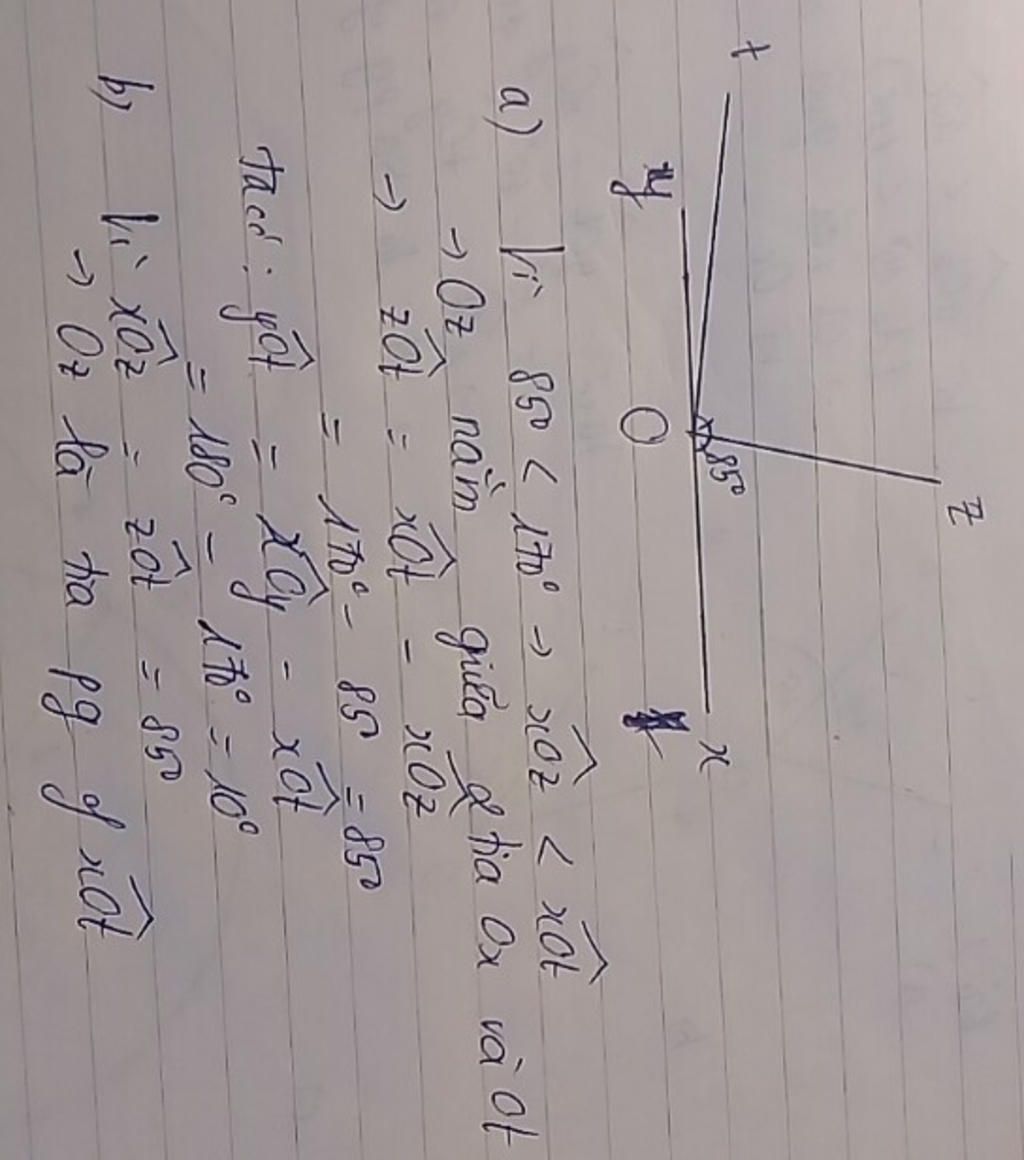 t
z
y
O
85°
x
a) Vì 85° < 170° → xÔz < xÔt
→ Oz nằm giữa 2 tia Ox và Ot
→ zÔt = xÔt - xÔz
= 170° - 85° = 85°
Ta có : yÔt = xÔy - xÔt
= 180° - 170° = 10°
b, Vì xÔz = zÔt = 85°
→ Oz là tia pg of xÔt